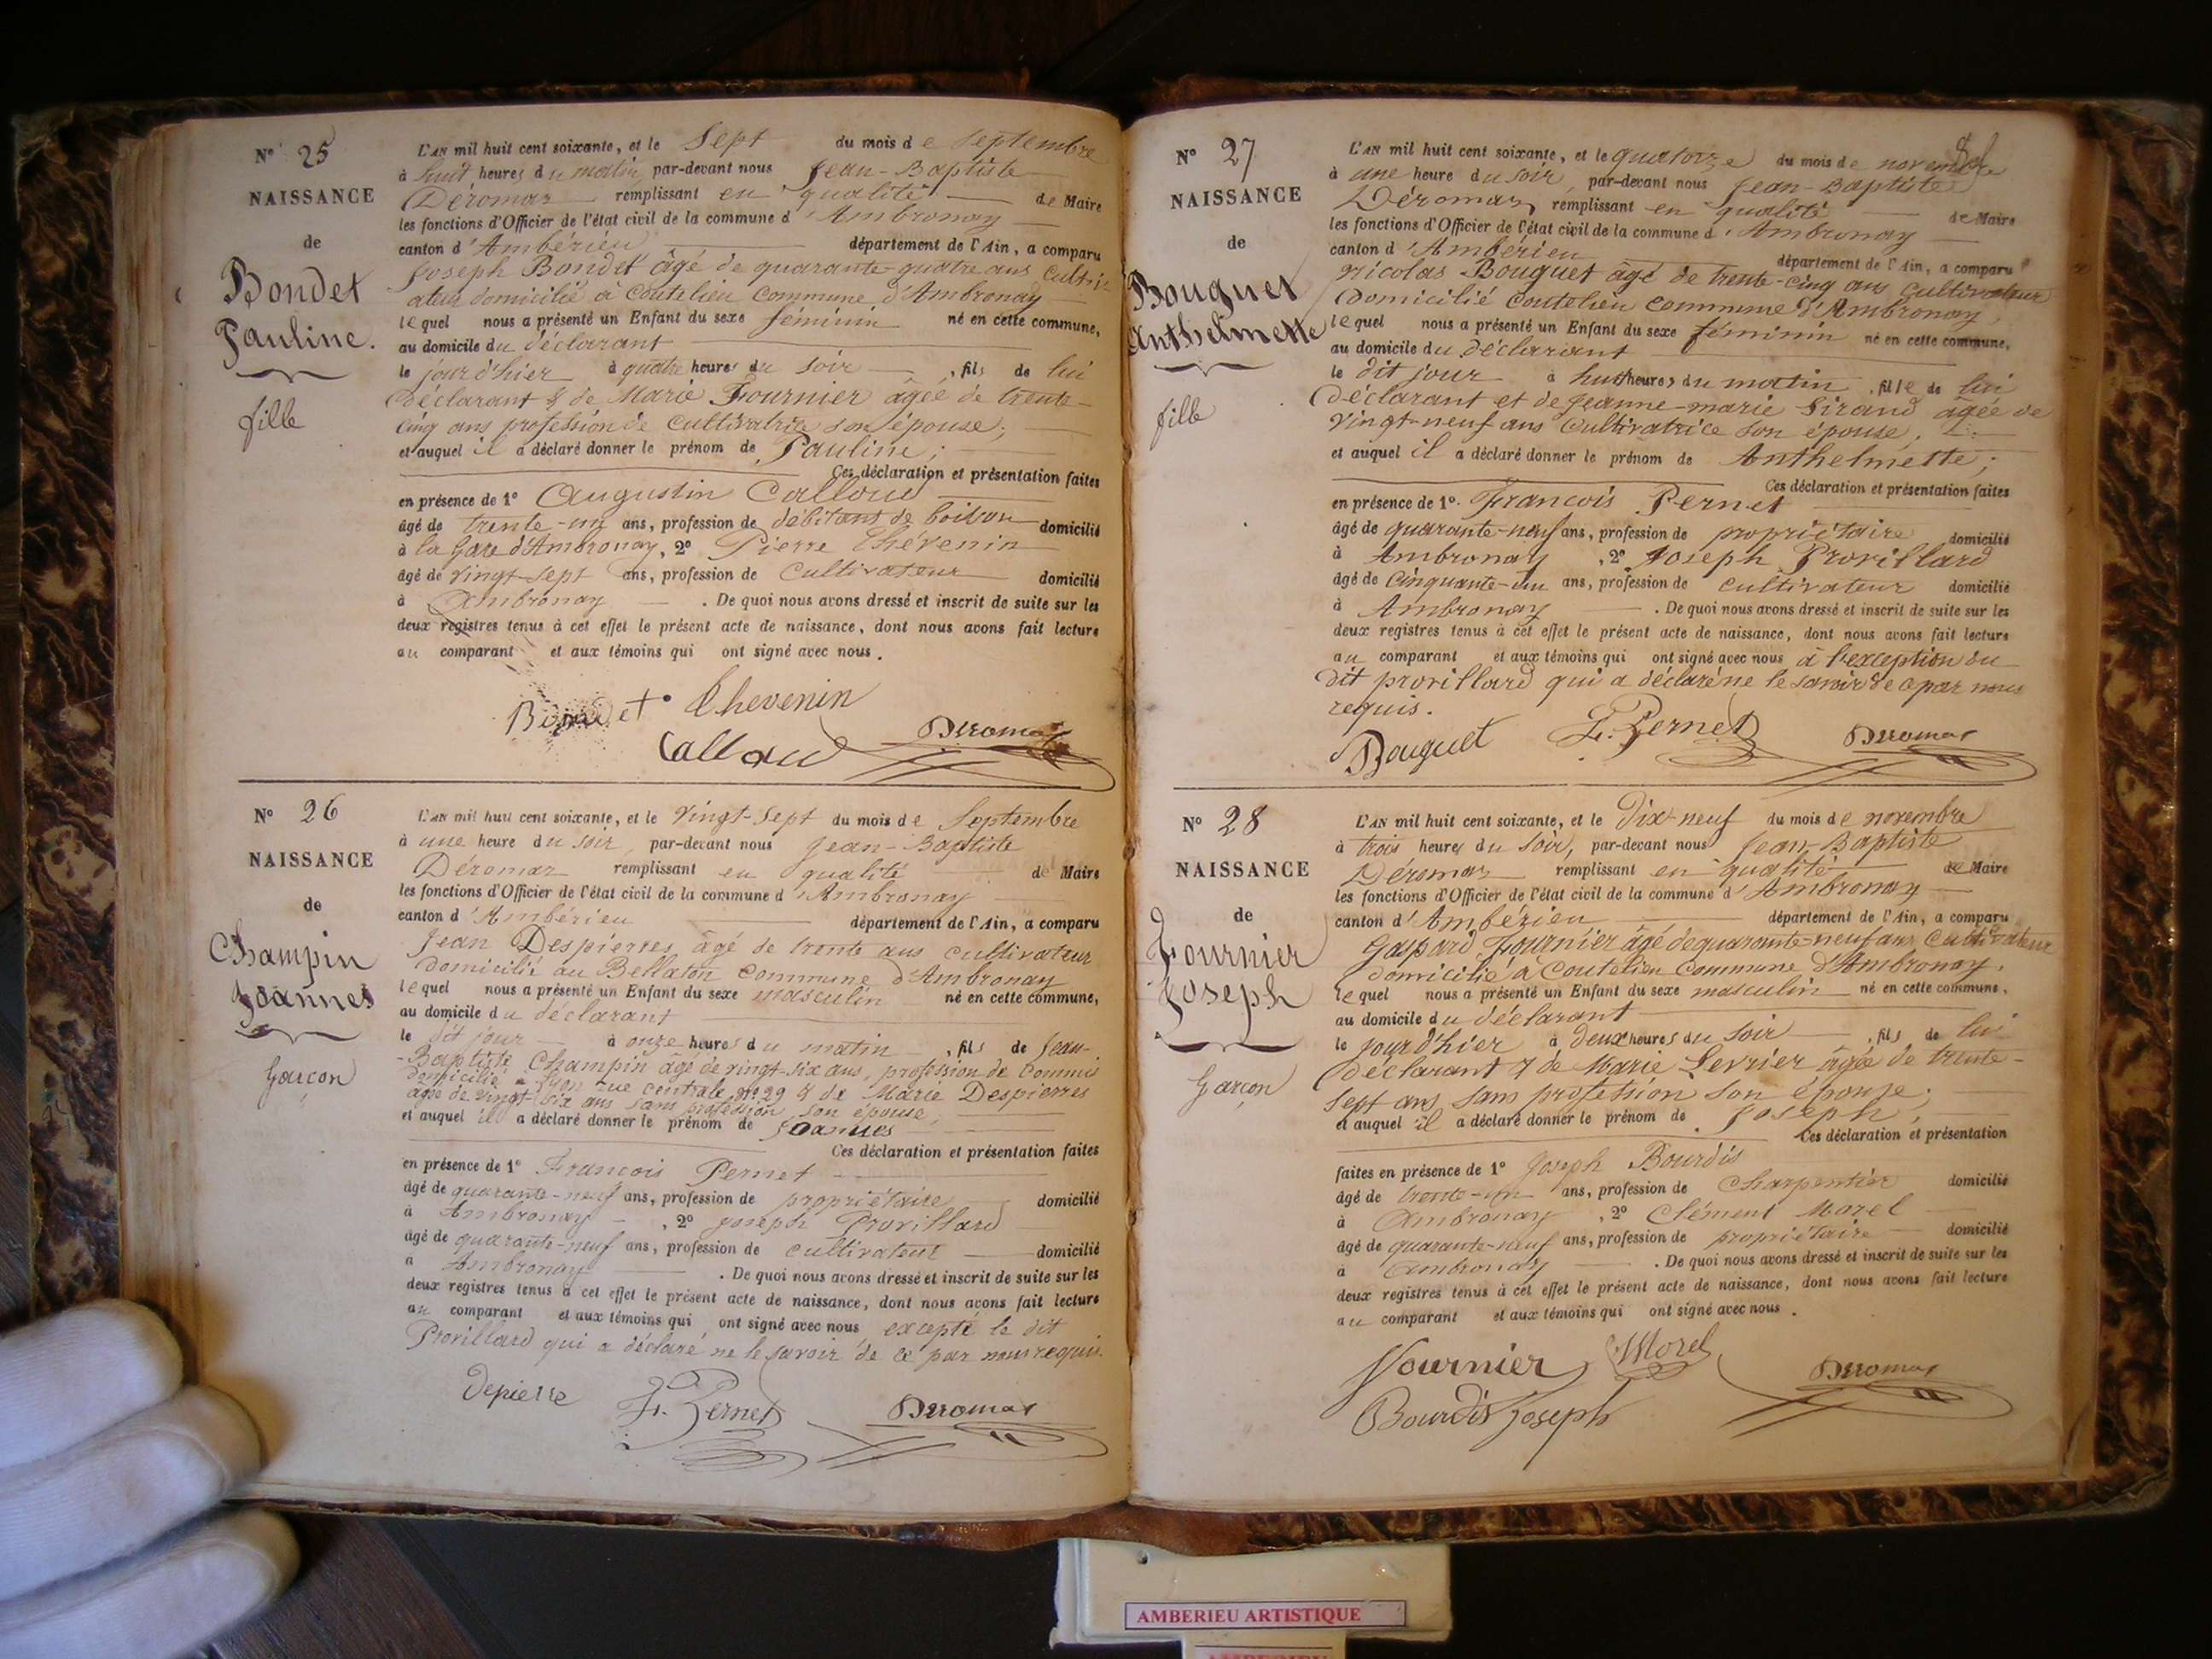 N° 25
NAISSANCE
de
Bondet
Pauline.
fille
L'AN mil huit cent soixante, et le Sept du mois de Septembre
à huit heures du matin, par-devant nous Jean-Baptiste
Déromas remplissant en qualité de Maire
les fonctions d'Officier de l'état civil de la commune d'Ambronay
canton d'Ambérieu département de l'Ain, a comparu
Joseph Bondet âgé de quarante-quatre ans cultiv-
ateur domicilié à Coutelieu commune d'Ambronay
lequel nous a présenté un Enfant du sexe féminin né en cette commune,
au domicile du déclarant
le jour d'hier à quatre heures du soir, fils de lui
déclarant & de Marie Fournier âgée de trente-
cinq ans profession de cultivatrice son épouse;
et auquel il a déclaré donner le prénom de Pauline;
Ces déclaration et présentation faites
en présence de 1° Augustin Calloud
âgé de trente-un ans, profession de débitant de boisson domicilié
à la Gare d'Ambronay, 2° Pierre Thévenin
âgé de vingt-sept ans, profession de cultivateur domicilié
à Ambronay. De quoi nous avons dressé et inscrit de suite sur les
deux registres tenus à cet effet le présent acte de naissance, dont nous avons fait lecture
au comparant et aux témoins qui ont signé avec nous.
Bondet Thevenin
Calloud Deromas
N° 26
NAISSANCE
de
Champin
Joannes
Garçon
L'AN mil huit cent soixante, et le vingt-sept du mois de Septembre
à une heure du soir, par-devant nous Jean-Baptiste
Déromas remplissant en qualité de Maire
les fonctions d'Officier de l'état civil de la commune d'Ambronay
canton d'Ambérieu département de l'Ain, a comparu
Jean Despierres âgé de trente ans cultivateur
domicilié au Bellaton commune d'Ambronay
lequel nous a présenté un Enfant du sexe masculin né en cette commune,
au domicile du déclarant
le dit jour à onze heures du matin, fils de Jean-
-Baptiste Champin âgé de vingt-six ans, profession de Commis
domicilié à Lyon rue centrale n° 29 & de Marie Despierres
âgée de vingt-six ans sans profession son épouse;
et auquel il a déclaré donner le prénom de Joannes
Ces déclaration et présentation faites
en présence de 1° François Pernet
âgé de quarante-neuf ans, profession de propriétaire domicilié
à Ambronay, 2° Joseph Provillard
âgé de quarante-neuf ans, profession de cultivateur domicilié
à Ambronay. De quoi nous avons dressé et inscrit de suite sur les
deux registres tenus à cet effet le présent acte de naissance, dont nous avons fait lecture
au comparant et aux témoins qui ont signé avec nous excepté le dit
Provillard qui a déclaré ne le savoir de ce par nous requis.
Depierre F. Pernet Deromas
N° 27
NAISSANCE
de
Bouguet
Anthelmette
fille
L'AN mil huit cent soixante, et le quatorze du mois de novembre
à une heure du soir, par-devant nous Jean-Baptiste
Déromas remplissant en qualité de Maire
les fonctions d'Officier de l'état civil de la commune d'Ambronay
canton d'Ambérieu département de l'Ain, a comparu
Nicolas Bouguet âgé de trente-cinq ans cultivateur
domicilié Coutelieu commune d'Ambronay
lequel nous a présenté un Enfant du sexe féminin né en cette commune,
au domicile du déclarant
le dit jour à huit heures du matin, fille de lui
déclarant et de Jeanne-marie Sirand âgée de
vingt-neuf ans cultivatrice son épouse;
et auquel il a déclaré donner le prénom de Anthelmette;
Ces déclaration et présentation faites
en présence de 1°. François Pernet
âgé de quarante-neuf ans, profession de propriétaire domicilié
à Ambronay, 2° Joseph Provillard
âgé de cinquante-un ans, profession de cultivateur domicilié
à Ambronay. De quoi nous avons dressé et inscrit de suite sur les
deux registres tenus à cet effet le présent acte de naissance, dont nous avons fait lecture
au comparant et aux témoins qui ont signé avec nous à l'exception du
dit provillard qui a déclaré ne le savoir de ce par nous
requis.
Bouguet F. Pernet Deromas
N° 28
NAISSANCE
de
Fournier
Joseph
Garçon
L'AN mil huit cent soixante, et le Dix-neuf du mois de novembre
à trois heures du soir, par-devant nous Jean-Baptiste
Déromas remplissant en qualité de Maire
les fonctions d'Officier de l'état civil de la commune d'Ambronay
canton d'Ambérieu département de l'Ain, a comparu
Gaspard Fournier âgé de quarante-neuf ans cultivateur
domicilié à Coutelieu commune d'Ambronay.
lequel nous a présenté un Enfant du sexe masculin né en cette commune,
au domicile du déclarant
le jour d'hier à deux heures du soir, fils de lui
déclarant & de Marie Levrier âgée de trente-
sept ans sans profession son épouse;
et auquel il a déclaré donner le prénom de Joseph;
Ces déclaration et présentation
faites en présence de 1° Joseph Bourdis
âgé de trente-un ans, profession de charpentier domicilié
à Ambronay, 2° Clément Morel
âgé de quarante-neuf ans, profession de propriétaire domicilié
à Ambronay. De quoi nous avons dressé et inscrit de suite sur les
deux registres tenus à cet effet le présent acte de naissance, dont nous avons fait lecture
au comparant et aux témoins qui ont signé avec nous.
Fournier Morel
Bourdis Joseph Deromas
AMBERIEU ARTISTIQUE
AMBERIEU